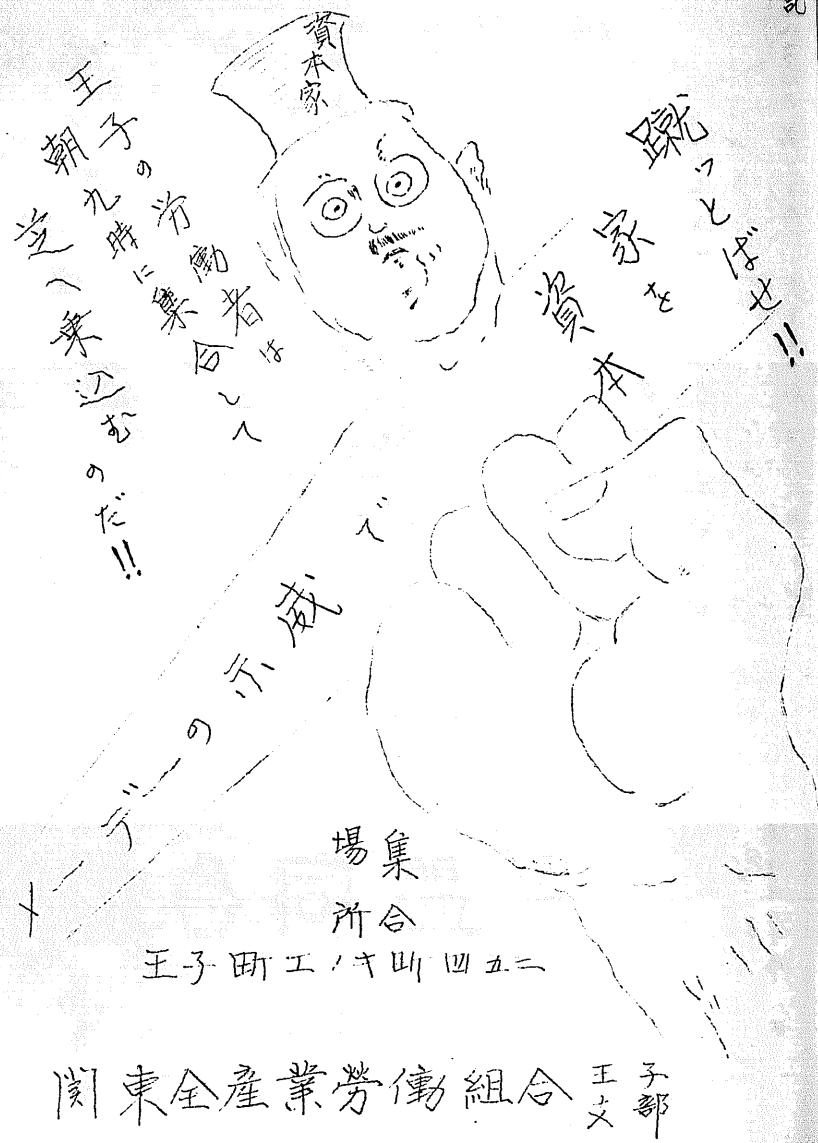 資本家
王子の労働者は
朝九時に集合して
芝へ乗込むのだ!!
メーデーの示威で
資本家を
蹴ッとばせ!!
集合
場所
王子町エノキ町四五二
関東全産業労働組合
王子
支部